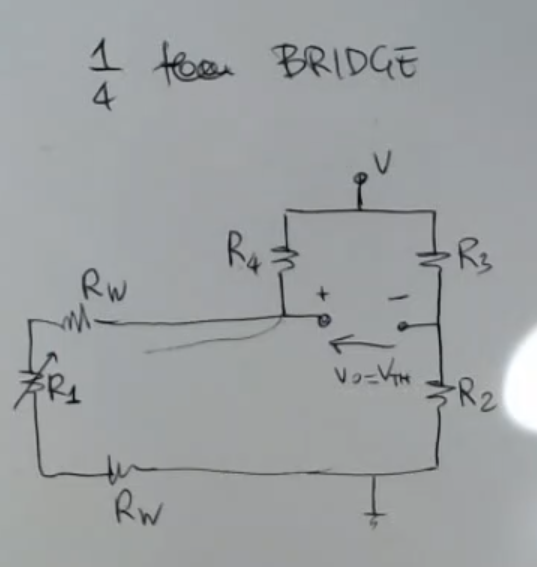 1/4 BRIDGE
V
R4
R3
RW
+
-
R1
V0=VTH
R2
RW